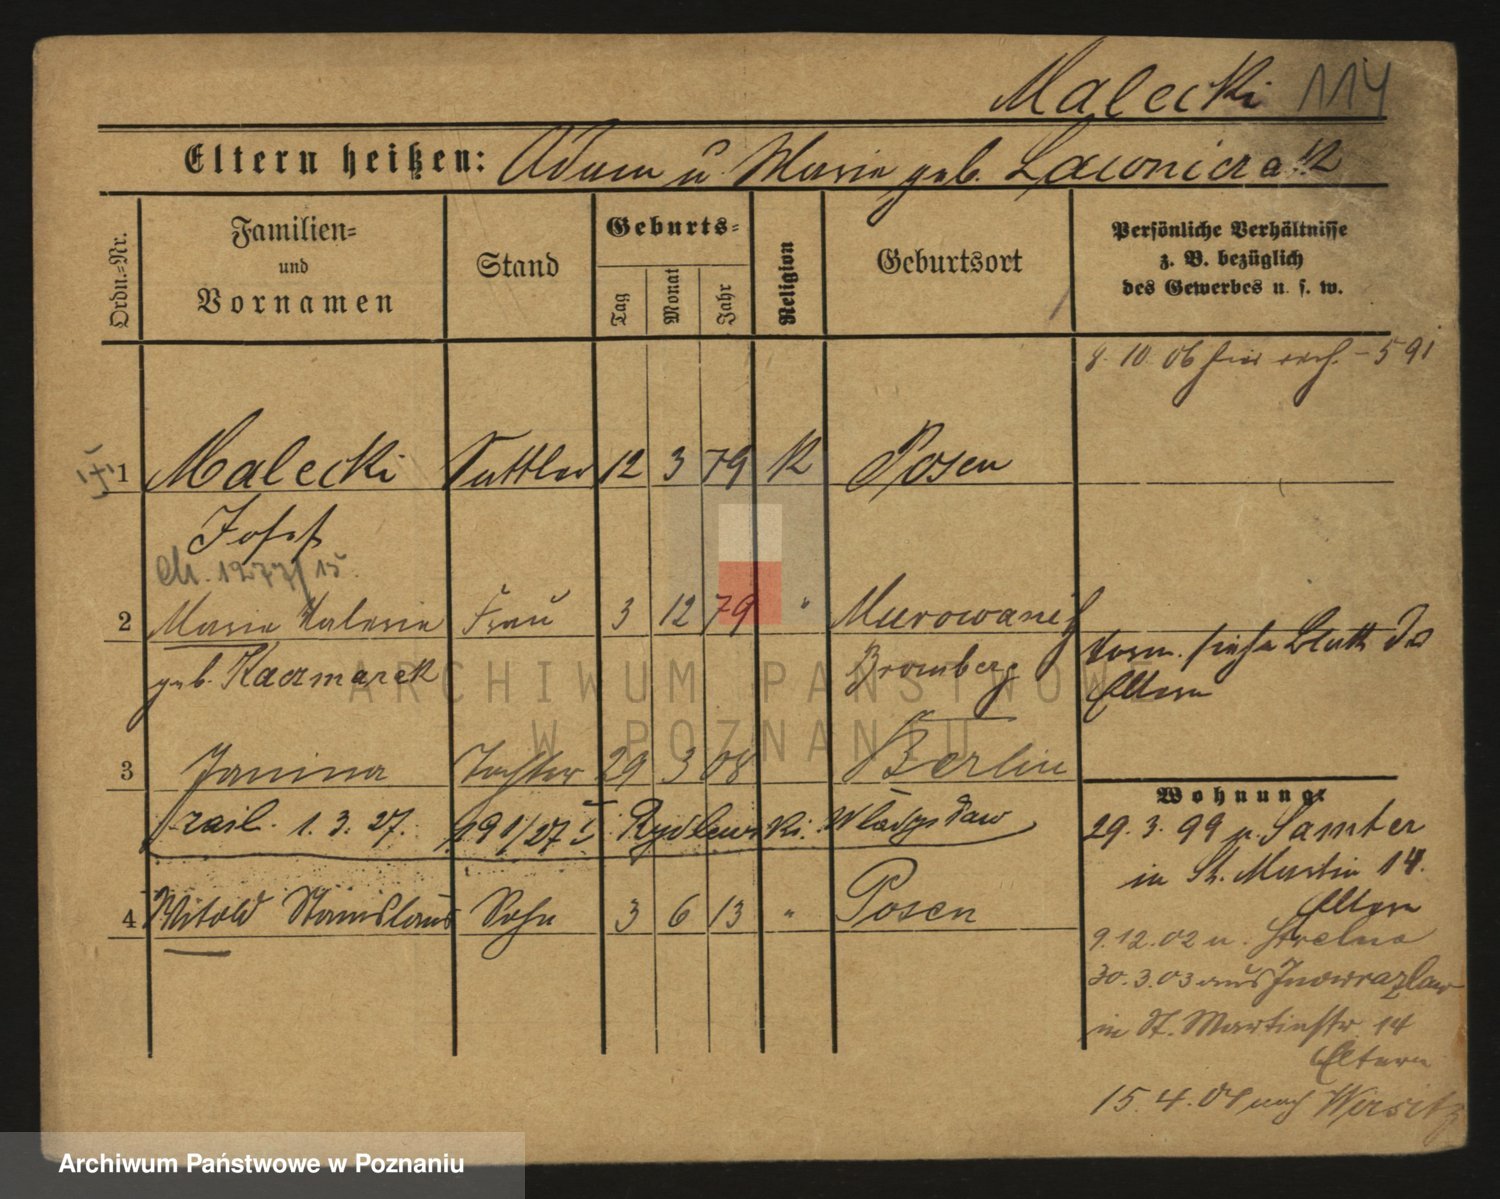 Malecki 114
Eltern heißen: Adam u Marie geb. Lawniczak
Ordn.-Nr.
Familien-
und
Vornamen
Stand
Geburts-
Tag
Monat
Jahr
Religion
Geburtsort
Persönliche Verhältnisse
z. B. bezüglich
des Gewerbes u. s. w.
8. 10. 06 hier 591
1 Malecki Sattler 12 3 79 K Posen
Josef
1277/15
2 Marie Valerie Frau 3 12 79 " Murowanitz
geb. Kaczmarek Bromberg
Vorm. siehe Blatt der
Eltern
3 Janina Tochter 29 3 08 Berlin
1. 3. 27. 191/27 I Rydlewski Władysław
4 Witold Stanislaus Sohn 3 6 13 " Posen
Wohnung:
29. 3. 99 v. Samter
in St. Martin 14.
Eltern
9. 12. 02 n. Strelno
30. 3. 03 aus Inowrazlaw
in St. Martinstr 14
Eltern
15. 4. 04 nach Wirsitz
ARCHIWUM PAŃSTWOWE
W POZNANIU
Archiwum Państwowe w Poznaniu